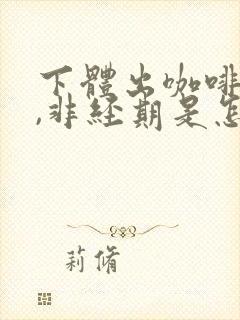 下體出咖啡
,非经期是怎
莉脩